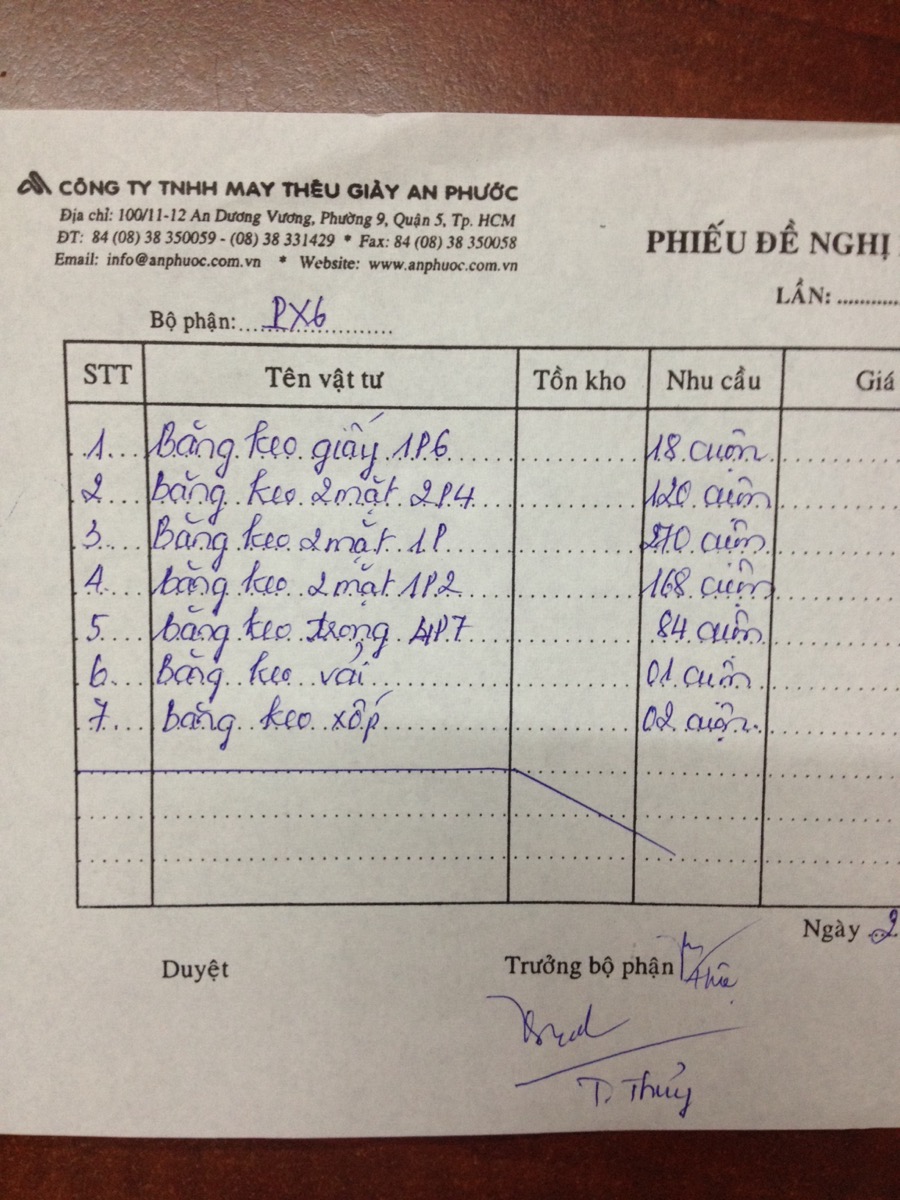 CÔNG TY TNHH MAY THÊU GIÀY AN PHƯỚC
Địa chỉ: 100/11-12 An Dương Vương, Phường 9, Quận 5, Tp. HCM
ĐT: 84 (08) 38 350059 - (08) 38 331429 * Fax: 84 (08) 38 350058
Email: info@anphuoc.com.vn * Website: www.anphuoc.com.vn
PHIẾU ĐỀ NGHỊ
LẦN: ...........
Bộ phận: PX6
STT Tên vật tư Tồn kho Nhu cầu Giá
1 Băng keo giấy 1P6 18 cuộn
2 băng keo 2 mặt 2P4 120 cuộn
3 Băng keo 2 mặt 1P 270 cuộn
4 băng keo 2 mặt 1P2 168 cuộn
5 băng keo trong 4P7 84 cuộn
6 Băng keo vải 01 cuộn
7 băng keo xốp 02 cuộn
Ngày 2
Duyệt Trưởng bộ phận
T. Thủy